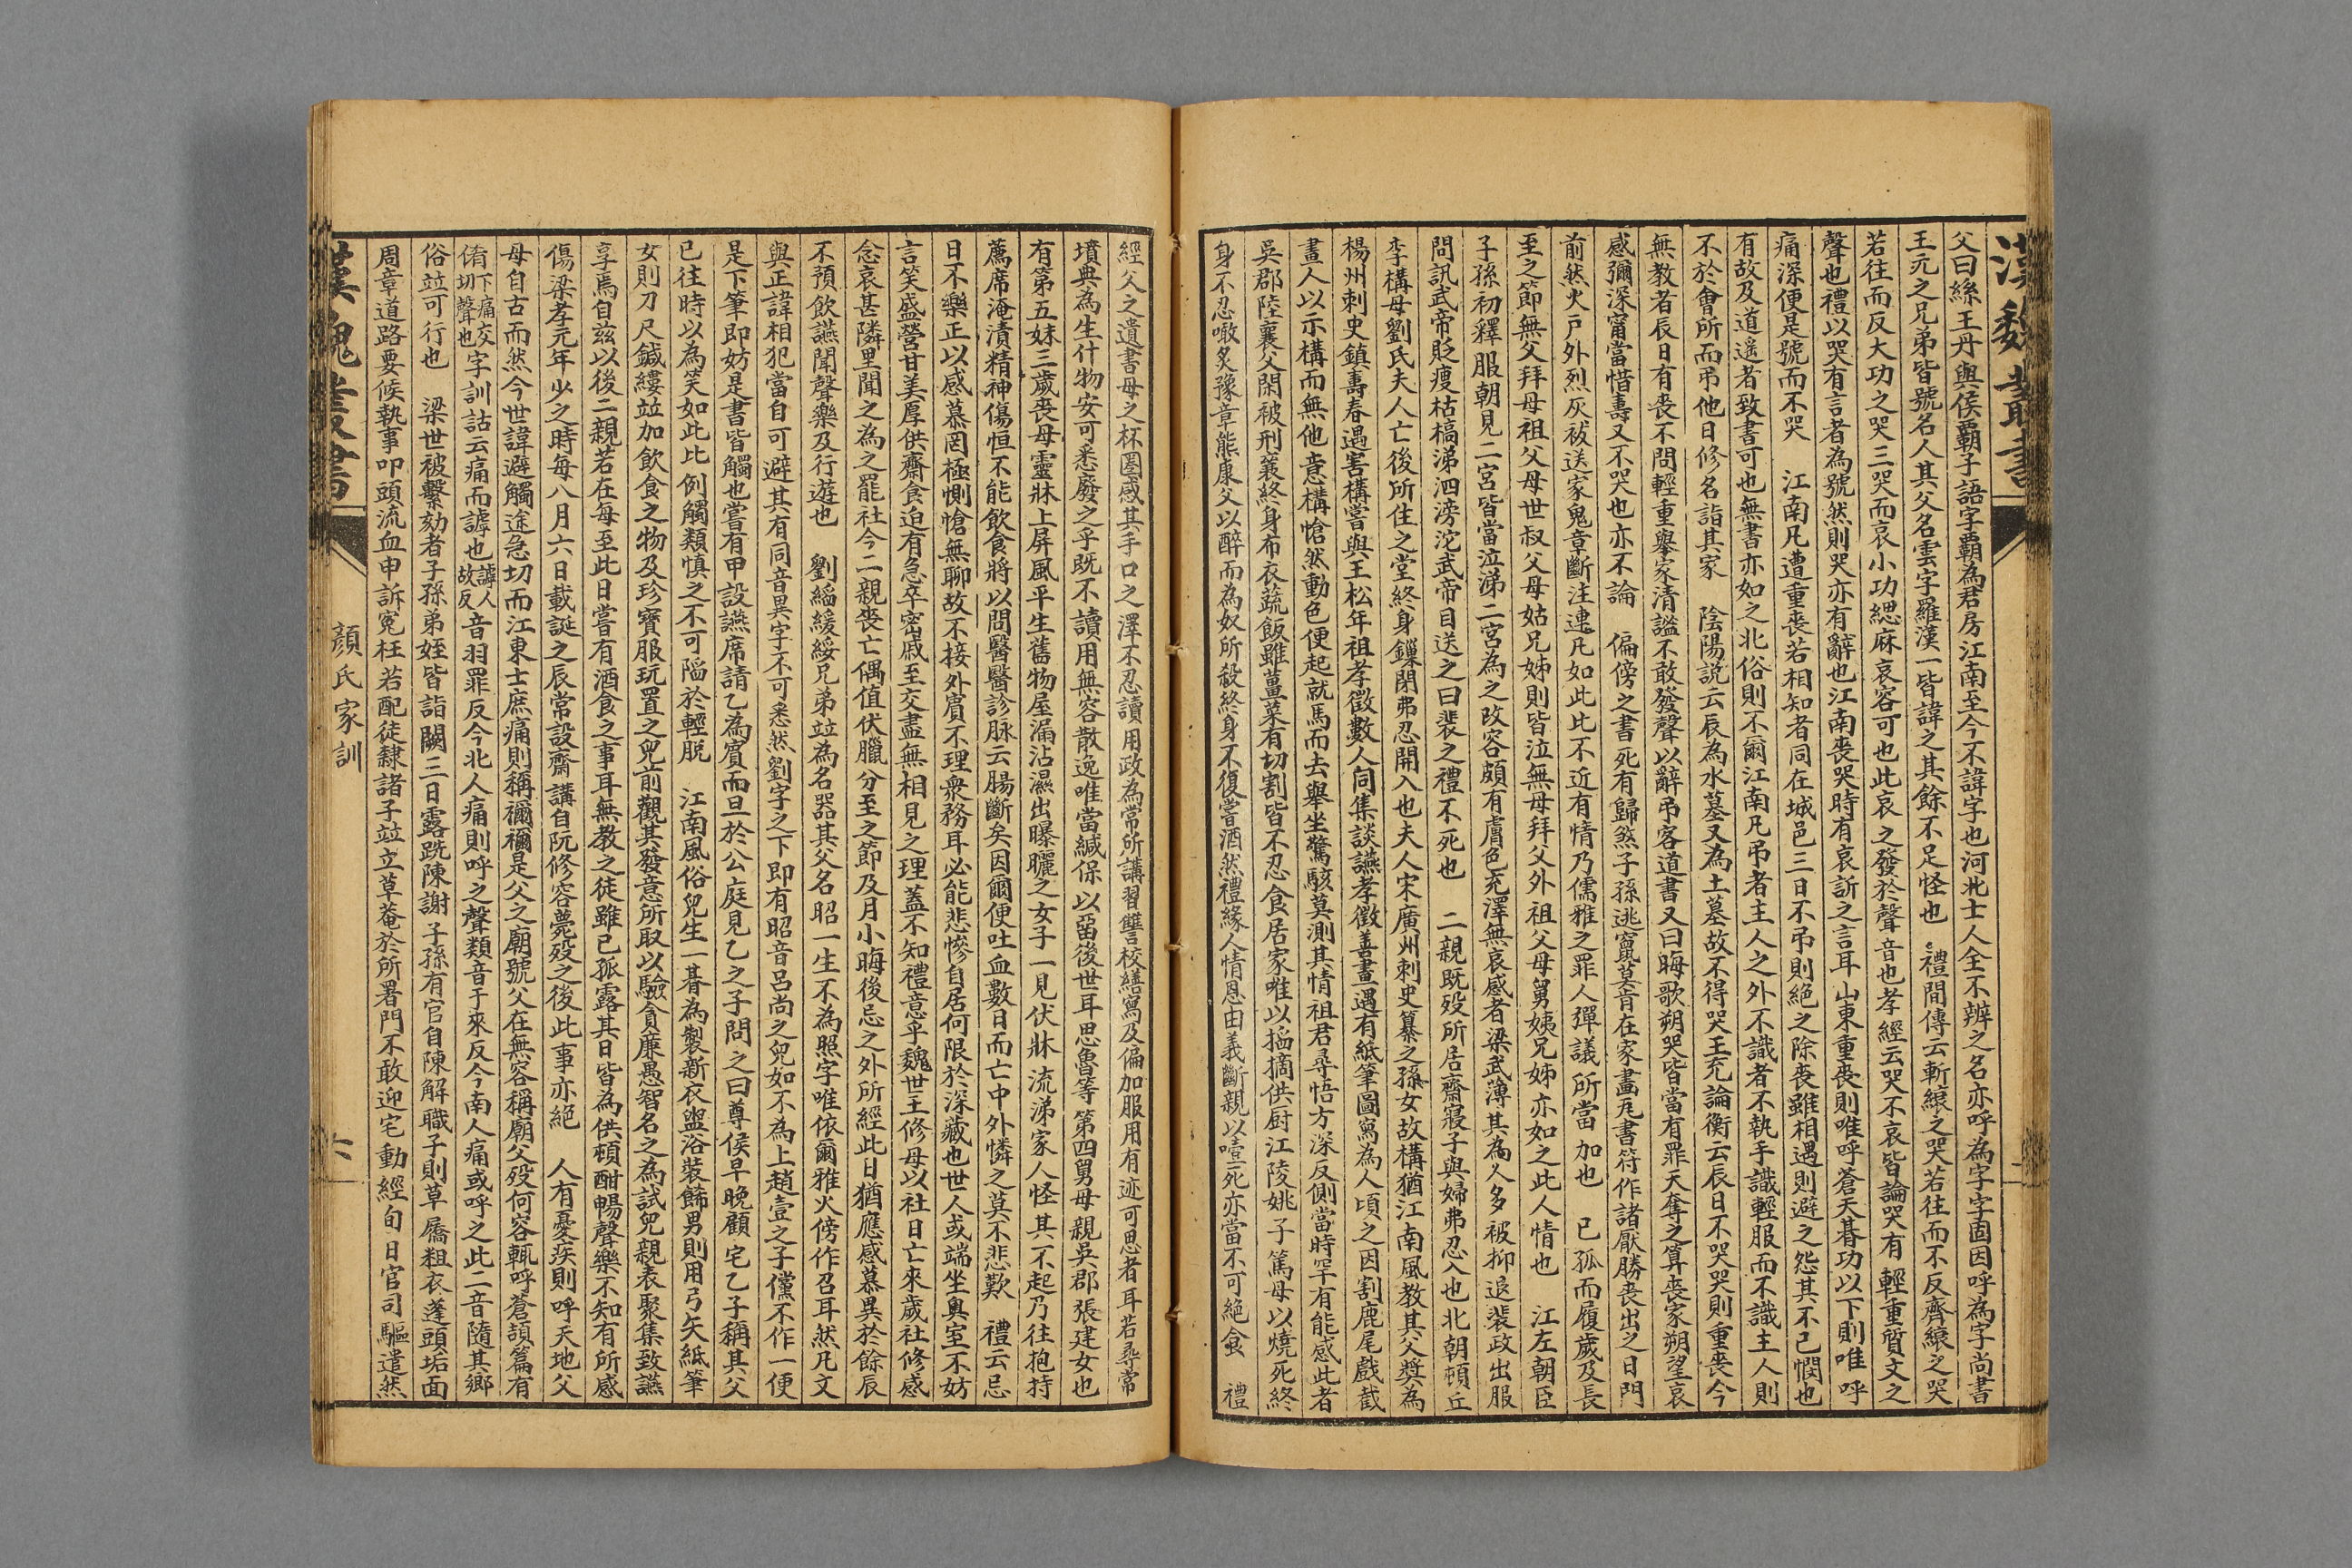 漢魏叢書
父曰絲王丹與侯覇子語字覇為君房江南至今不諱字也河北士人全不辨之名亦呼為字字固因呼為字尚書
王元之兄弟皆號名人其父名雲字羅漢一皆諱之其餘不足怪也 禮間傳云斬縗之哭若往而不反齊縗之哭
若往而反大功之哭三哭而哀小功緦麻哀容可也此哀之發於聲音也孝經云哭不哀皆論哭有輕重質文之
聲也禮以哭有言者為號然則哭亦有辭也江南喪哭時有哀訴之言耳山東重喪則唯呼蒼天朞功以下則唯呼
痛深便是號而不哭 江南凡遭重喪若相知者同在城邑三日不弔則絕之除喪雖相遇則避之怨其不己憫也
有故及道遥者致書可也無書亦如之北俗則不爾江南凡弔者主人之外不識者不執手識輕服而不識主人則
不於會所而弔他日修名詣其家 陰陽説云辰為水墓又為土墓故不得哭王充論衡云辰日不哭哭則重喪今
無教者辰日有喪不問輕重舉家清謐不敢發聲以辭弔客道書又曰晦歌朔哭皆當有罪天奪之算喪家朔望哀
感彌深甯當惜壽又不哭也亦不論 偏傍之書死有歸煞子孫逃竄莫肯在家畫瓦書符作諸厭勝喪出之日門
前然火戸外烈灰祓送家鬼章斷注連凡如此比不近有情乃儒雅之罪人彈議所當加也 已孤而履歲及長
至之節無父拜母祖父母世叔父母姑兄姊則皆泣無母拜父外祖父母舅姨兄姊亦如之此人情也 江左朝臣
子孫初釋服朝見二宮皆當泣涕二宮為之改容頗有膚色充澤無哀感者梁武薄其為人多被抑退裴政出服
問訊武帝貶瘦枯槁涕泗滂沱武帝目送之曰裴之禮不死也 二親既歿所居齋寢子與婦弗忍入也北朝頓丘
李構母劉氏夫人亡後所住之堂終身鏁閉弗忍開入也夫人宋廣州刺史纂之孫女故構猶江南風教其父奬為
楊州刺史鎮壽春遇害構嘗與王松年祖孝徵數人同集談讌孝徵善畫遇有紙筆圖寫為人頃之因割鹿尾戲截
畫人以示構而無他意構愴然動色便起就馬而去舉坐驚駭莫測其情祖君尋悟方深反側當時罕有能感此者
吳郡陸襄父閑被刑襄終身布衣蔬飯雖薑菜有切割皆不忍食居家唯以搯摘供厨江陵姚子篤母以燒死終
身不忍噉炙豫章熊康父以醉而為奴所殺終身不復嘗酒然禮緣人情恩由義斷親以噎死亦當不可絕食 禮
經父之遺書母之杯圏感其手口之澤不忍讀用政為常所講習讐校繕寫及偏加服用有迹可思者耳若尋常
墳典為生什物安可悉廢之乎既不讀用無容散逸唯當緘保以畱後世耳思魯等第四舅母親吳郡張建女也
有第五妹三歲喪母靈牀上屏風平生舊物屋漏沾濕出曝曬之女子一見伏牀流涕家人怪其不起乃往抱持
薦席淹漬精神傷恒不能飲食將以問醫醫診脉云腸斷矣因爾便吐血數日而亡中外憐之莫不悲歎 禮云忌
日不樂正以感慕罔極惻愴無聊故不接外賓不理衆務耳必能悲慘自居何限於深藏也世人或端坐奧室不妨
言笑盛營甘美厚供齋食迫有急卒密戚至交盡無相見之理蓋不知禮意乎魏世王修母以社日亡來歲社修感
念哀甚隣里聞之為之罷社今二親喪亡偶值伏臘分至之節及月小晦後忌之外所經此日猶應感慕異於餘辰
不預飲讌聞聲樂及行遊也 劉縚緩綏兄弟竝為名器其父名昭一生不為照字唯依爾雅火傍作召耳然凡文
與正諱相犯當自可避其有同音異字不可悉然劉字之下即有昭音呂尚之兒如不為上趙壹之子儻不作一便
是下筆即妨是書皆觸也嘗有甲設讌席請乙為賓而旦於公庭見乙之子問之曰尊侯早晚顧宅乙子稱其父
已往時以為笑如此比例觸類慎之不可陷於輕脱 江南風俗兒生一朞為製新衣盥浴裝飾男則用弓矢紙筆
女則刀尺鍼縷竝加飲食之物及珍寶服玩置之兒前觀其發意所取以驗貪廉愚智名之為試兒親表聚集致讌
享焉自兹以後二親若在每至此日嘗有酒食之事耳無教之徒雖已孤露其日皆為供頓酣暢聲樂不知有所感
傷梁孝元年少之時每八月六日載誕之辰常設齋講自阮修容薨歿之後此事亦絕 人有憂疾則呼天地父
母自古而然今世諱避觸途急切而江東士庶痛則稱禰禰是父之廟號父在無容稱廟父歿何容輒呼蒼頡篇有
倄下痛交切聲也字訓詁云痛而謼也謼人故反音羽罪反今北人痛則呼之聲類音于來反今南人痛或呼之此二音隨其鄉
俗竝可行也 梁世被繫劾者子孫弟姪皆詣闕三日露跣陳謝子孫有官自陳解職子則草屩粗衣蓬頭垢面
周章道路要候執事叩頭流血申訴冤枉若配徒隸諸子竝立草菴於所署門不敢迎宅動經旬日官司驅遣然
漢魏叢書
顏氏家訓